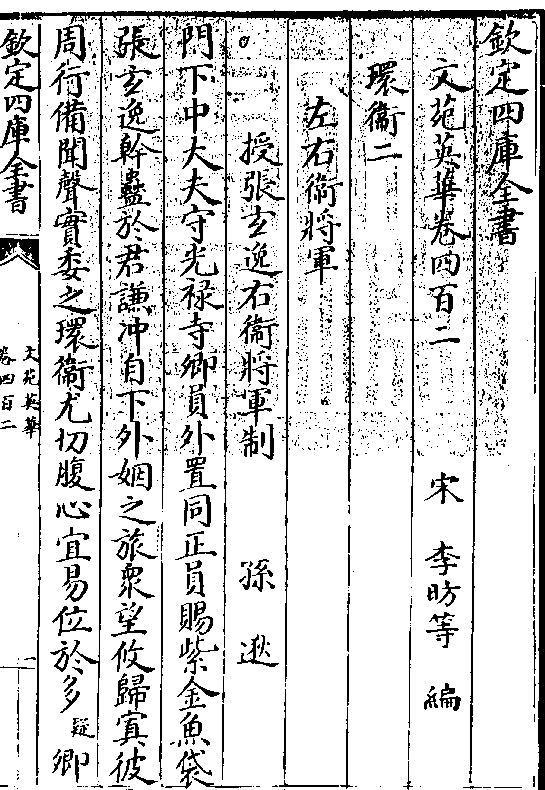 欽定四庫全書
文苑英華卷四百二　宋　李昉等　編
環衞二
左右衞將軍
授張玄逸右衞將軍制　孫逖
門下中大夫守光祿寺卿員外置同正員賜紫金魚袋
張玄逸幹蠱於君謙冲自下外姻之旅衆望攸歸寘彼
周行備聞聲實委之環衞尤切腹心宜易位於多疑卿
欽定四庫全書
文苑英華
卷四百二
一